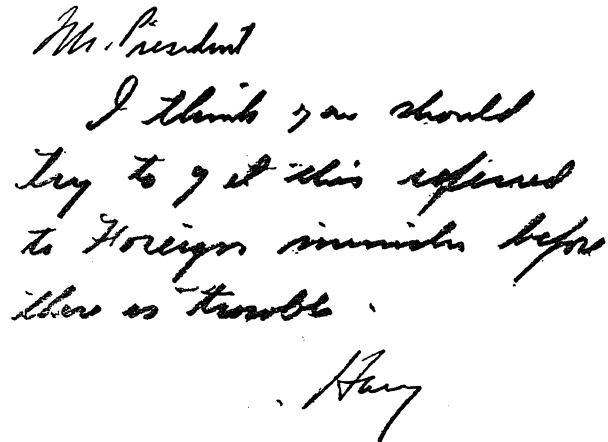 Mr. President
I think you should
try to get this referred
to Foreign minister before
there is trouble.
Harry